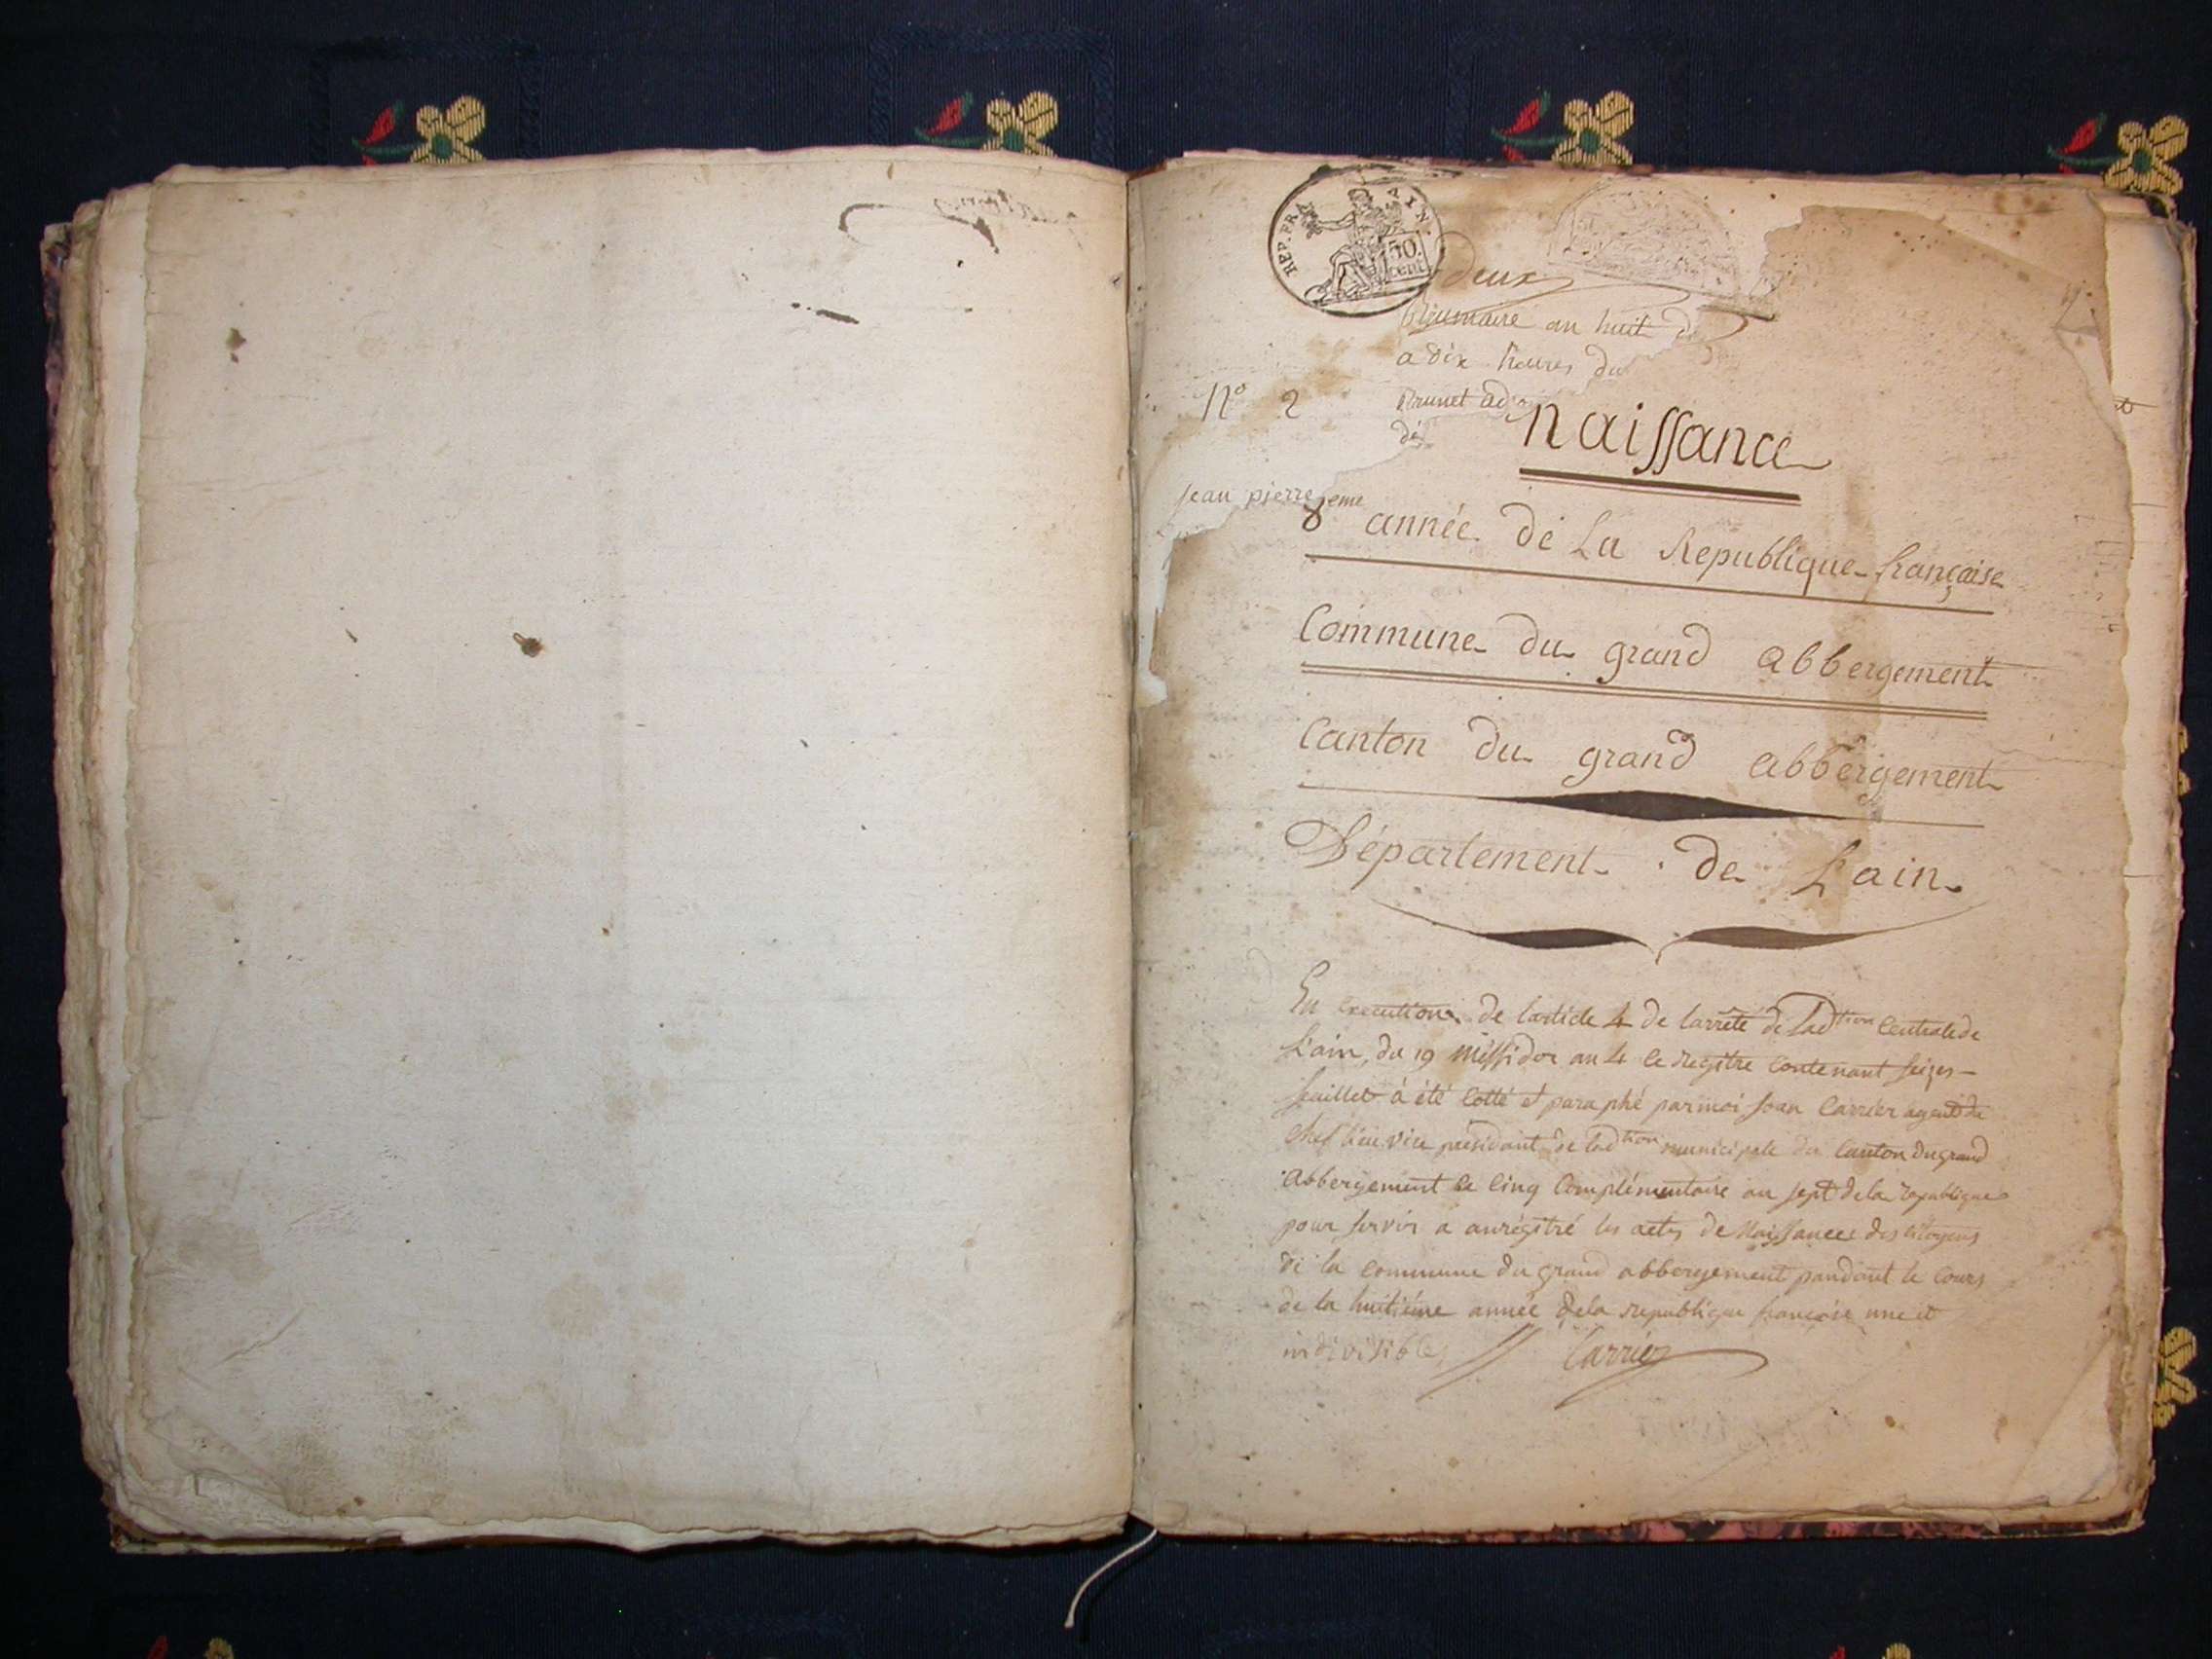 REP. FRA AIN.
50. cent
deux
brumaire an huit de
a dix heures du
Nº 2
brunet adj
de
Naissance
jean pierre
8eme année de La Republique française
Commune du grand abbergement
Canton du grand abbergement
Département de Lain
En execution de larticle 4 de larrêté de Ladtion Centrale de
L'ain, du 19 Messidor an 4 le registre Contenant seizes
feuillet à été Cotté et paraphé par moi Jean Carrier agent du
Chef lieu vice présidant de ladtion municipale du Canton du grand
abbergement le Cinq Complémentaire an sept de la republique
pour servir a anrégitré les actes de Naissances des Citoyens
de la Commune du grand abbergement pandant le Cours
de la huitiéme année de la republique françoise une et
indivisible // Carrier